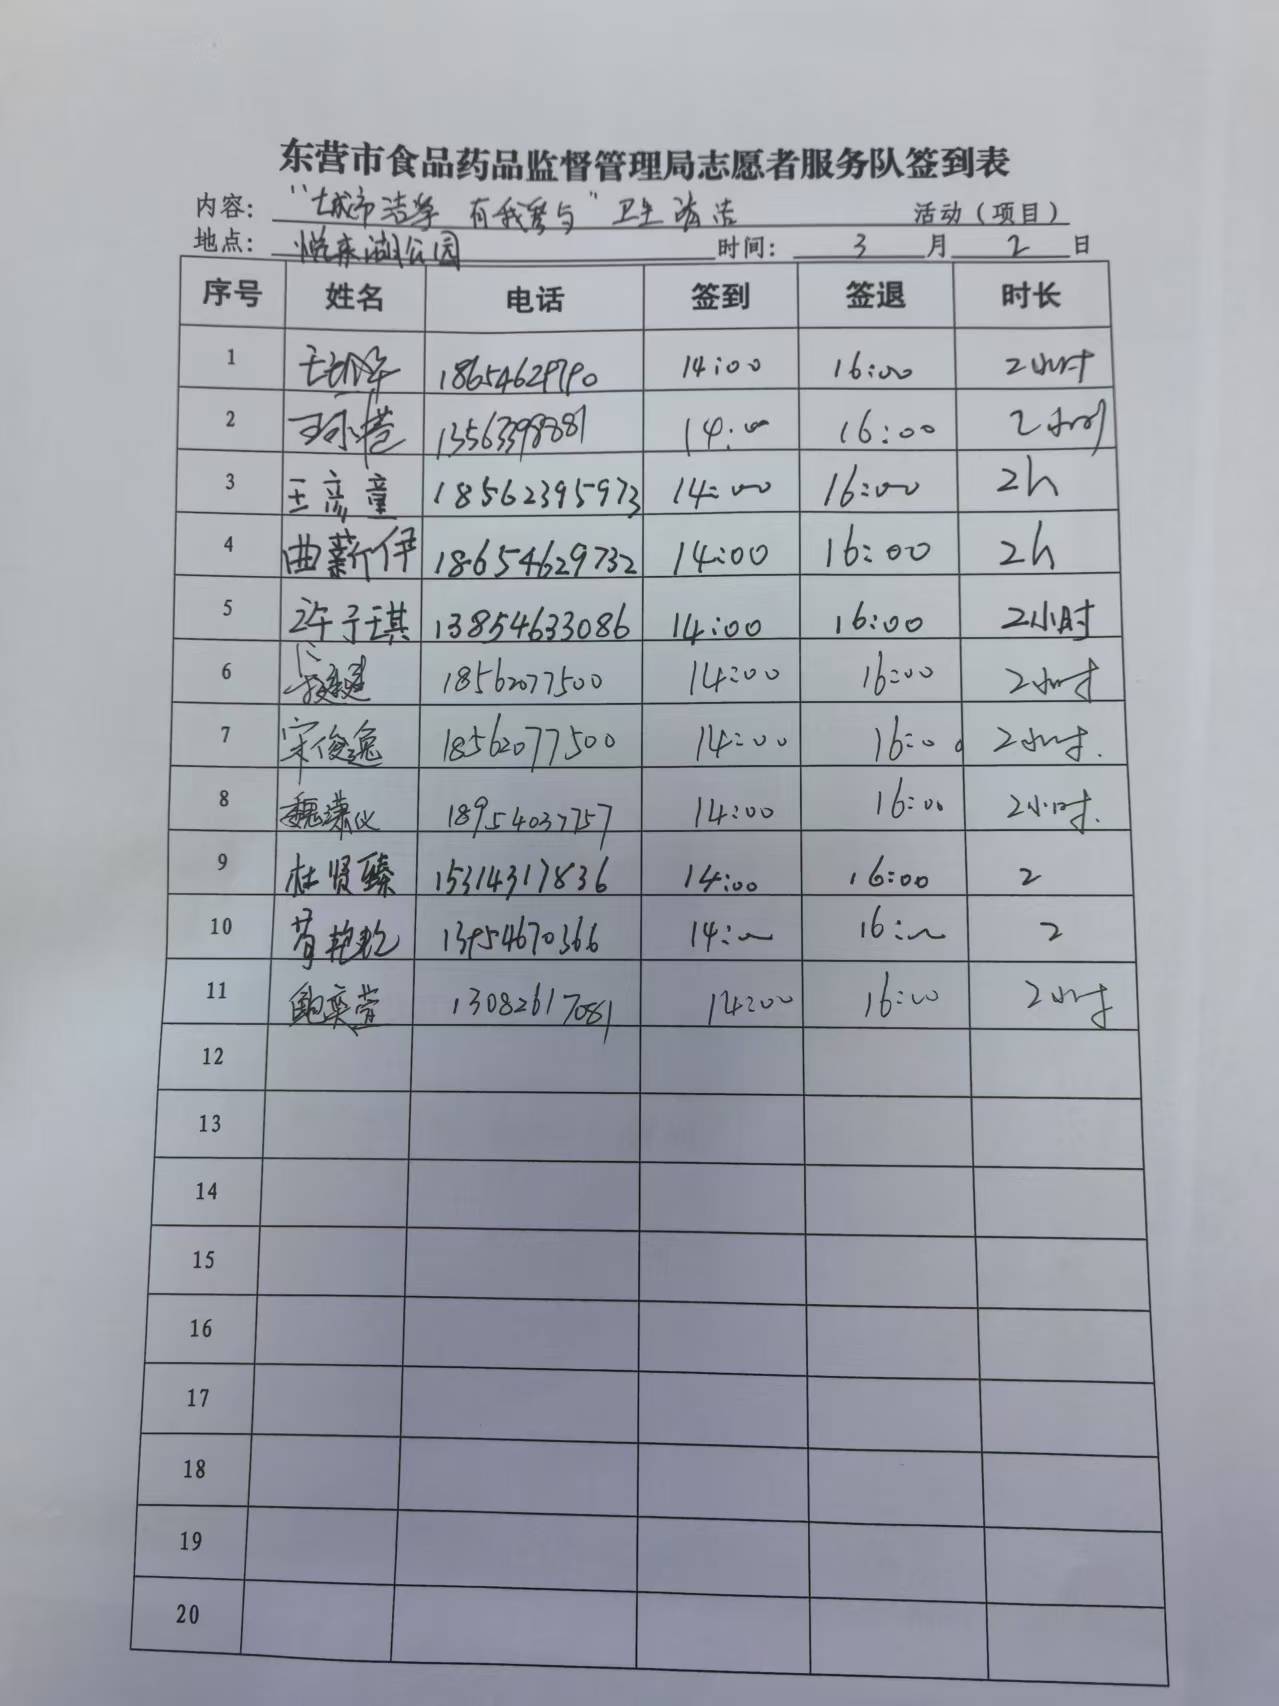 东营市食品药品监督管理局志愿者服务队签到表
内容： "城市洁净 有我参与" 卫生清洁 活动（项目）
地点： 悦来湖公园 时间： 3 月 2 日
序号 姓名 电话 签到 签退 时长
1 18654629790 14:00 16:00 2小时
2 13563398881 14:00 16:00 2小时
3 王 童 18562395973 14:00 16:00 2h
4 曲薪伊 18654629732 14:00 16:00 2h
5 许子琪 13854633086 14:00 16:00 2小时
6 18562077500 14:00 16:00 2小时
7 宋俊逸 18562077500 14:00 16:00 2小时.
8 魏潇仪 18954037757 14:00 16:00 2小时.
9 杜贤臻 15314317836 14:00 16:00 2
10 13954670366 14:00 16:00 2
11 鲍奕萱 13082617081 14:00 16:00 2小时
12
13
14
15
16
17
18
19
20